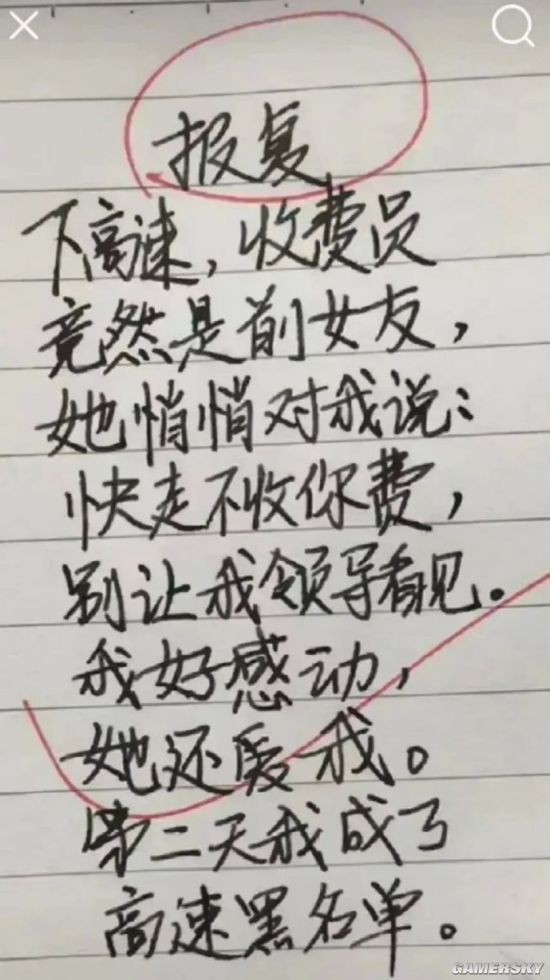 报复
下高速，收费员
竟然是前女友，
她悄悄对我说：
快走不收你费，
别让我领导看见。
我好感动，
她还爱我。
第二天我成了
高速黑名单。
GAMERSKY